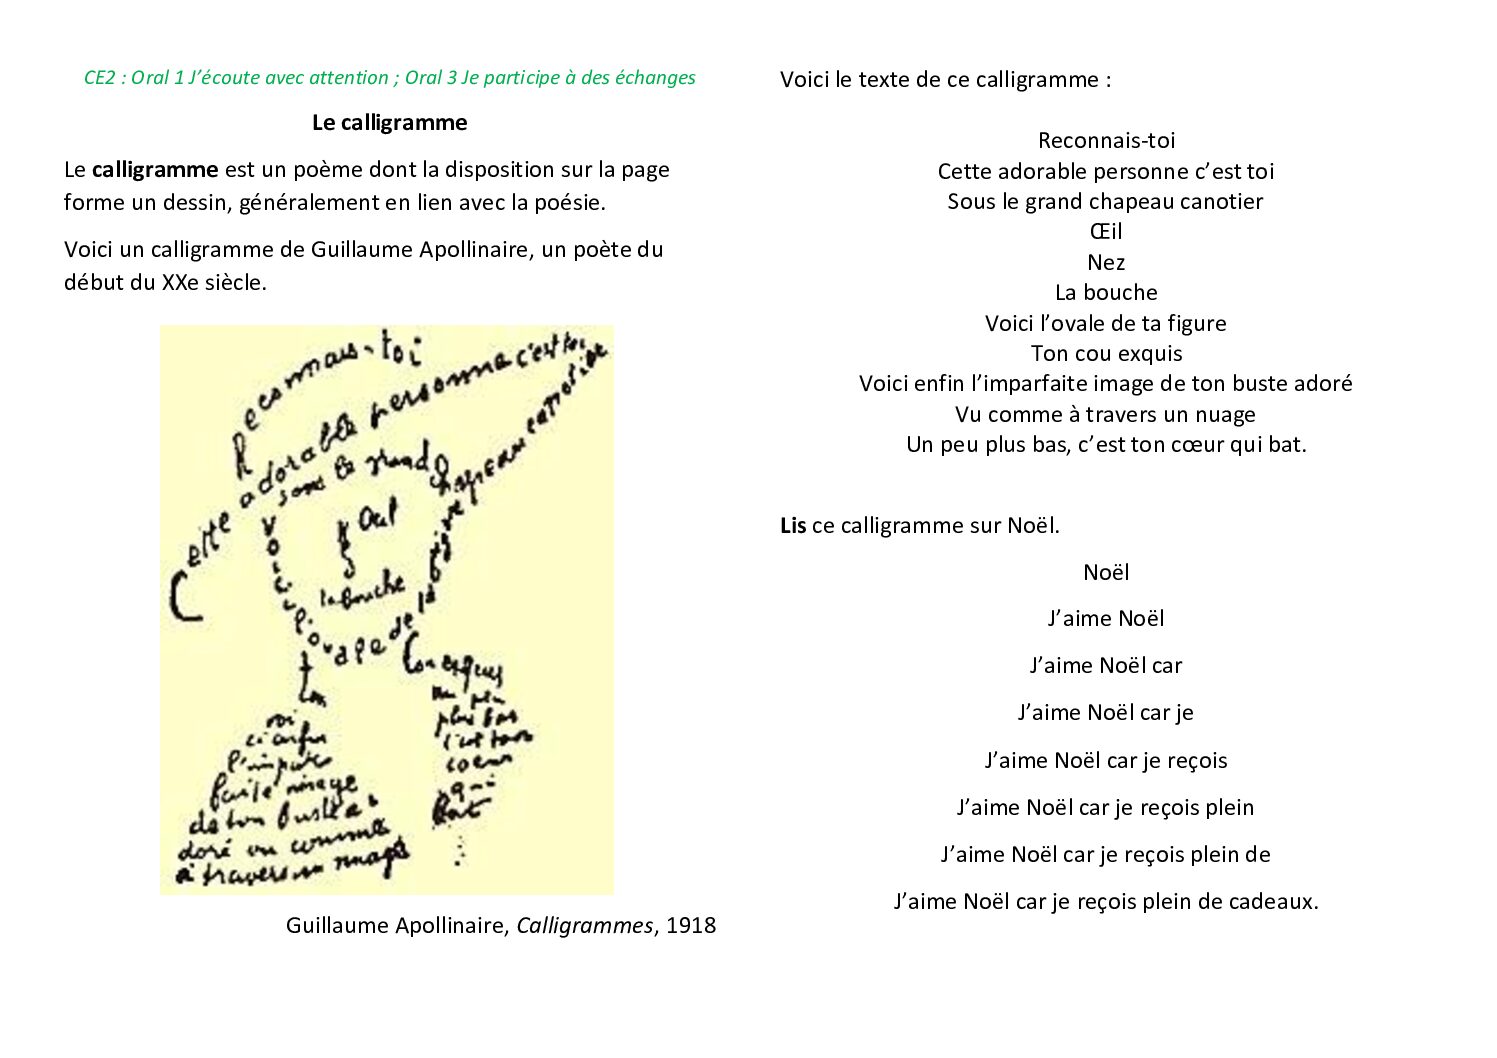 CE2 : Oral 1 J’écoute avec attention ; Oral 3 Je participe à des échanges
Le calligramme
Le calligramme est un poème dont la disposition sur la page
forme un dessin, généralement en lien avec la poésie.
Voici un calligramme de Guillaume Apollinaire, un poète du
début du XXe siècle.
Reconnais-toi
Cette adorable personne c'est toi
sous le grand chapeau canotier
Œil
Nez
la bouche
Voici l'ovale de ta figure
ton
Cou exquis
Voi
ci enfin
l'impar
faite image
de ton buste a
doré vu comme
à travers un nuage
un peu
plus bas
c'est ton
coeur
qui
bat
Guillaume Apollinaire, Calligrammes, 1918
Voici le texte de ce calligramme :
Reconnais-toi
Cette adorable personne c’est toi
Sous le grand chapeau canotier
Œil
Nez
La bouche
Voici l’ovale de ta figure
Ton cou exquis
Voici enfin l’imparfaite image de ton buste adoré
Vu comme à travers un nuage
Un peu plus bas, c’est ton cœur qui bat.
Lis ce calligramme sur Noël.
Noël
J’aime Noël
J’aime Noël car
J’aime Noël car je
J’aime Noël car je reçois
J’aime Noël car je reçois plein
J’aime Noël car je reçois plein de
J’aime Noël car je reçois plein de cadeaux.